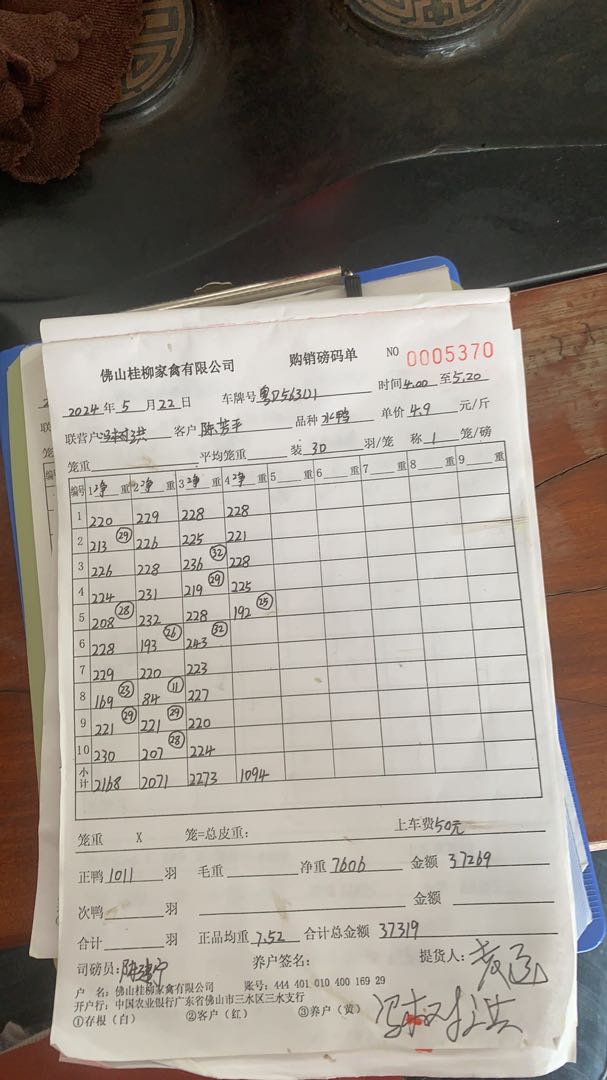 佛山桂柳家禽有限公司 购销磅码单 NO 0005370
2024年5月22日 车牌号 时间4.00至5.20
联营户 客户陈芳平 品种水鸭 单价4.9元/斤
笼重 平均笼重 装30羽/笼 称1笼/磅
编号 1净重 2净重 3净重 4净重 5重 6重 7重 8重 9重
1 220 229 228 228
2 213 29 226 225 221
3 226 228 236 32 228
4 224 231 219 29 225
5 208 28 232 228 192 25
6 228 193 26 243 32
7 229 220 223
8 169 23 84 11 227
9 221 29 221 29 220
10 230 207 28 224
小计 2168 2071 2273 1094
笼重 X 笼=总皮重: 上车费50元
正鸭1011羽 毛重 净重7606 金额37269
次鸭 羽 金额
合计 羽 正品均重7.52 合计总金额37319
司磅员: 养户签名: 提货人:
户 名:佛山桂柳家禽有限公司 账号:444 401 010 400 169 29
开户行:中国农业银行广东省佛山市三水区三水支行
①存根(白) ②客户(红) ③养户(黄)